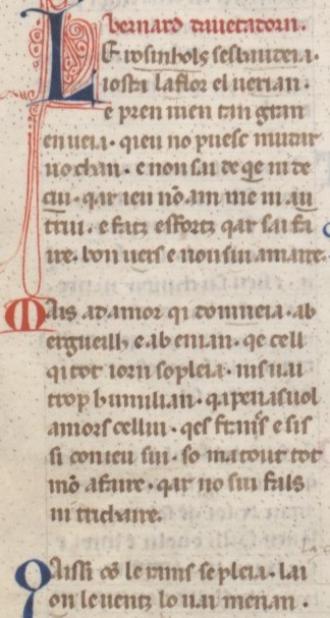 bernard deuetadorn.
LE rosinhols sesbaudeia.
iosta la flor el uerian.
e pren men tan gran
enueia. qieu no puesc mudar
no chan. e non sai de qe ni de
cui. qar ieu nō am me ni au
trui. e fatz esfortz qar sai fa
ire. bon uers e non sui amaire.
Mais ad amor qi domneia. ab
ergueilh e ab enian. qe cell
qi tot iorn sopleia. ni sinai
trop humilian. qapenas uol
amors cellui. qes francs e sis
si con ieu sui. so ma tout tot
mō afaire. qar no sui fals
ni trichaire.
Aissi cō le rams se pleia. lai
on le uentz lo uai menan.